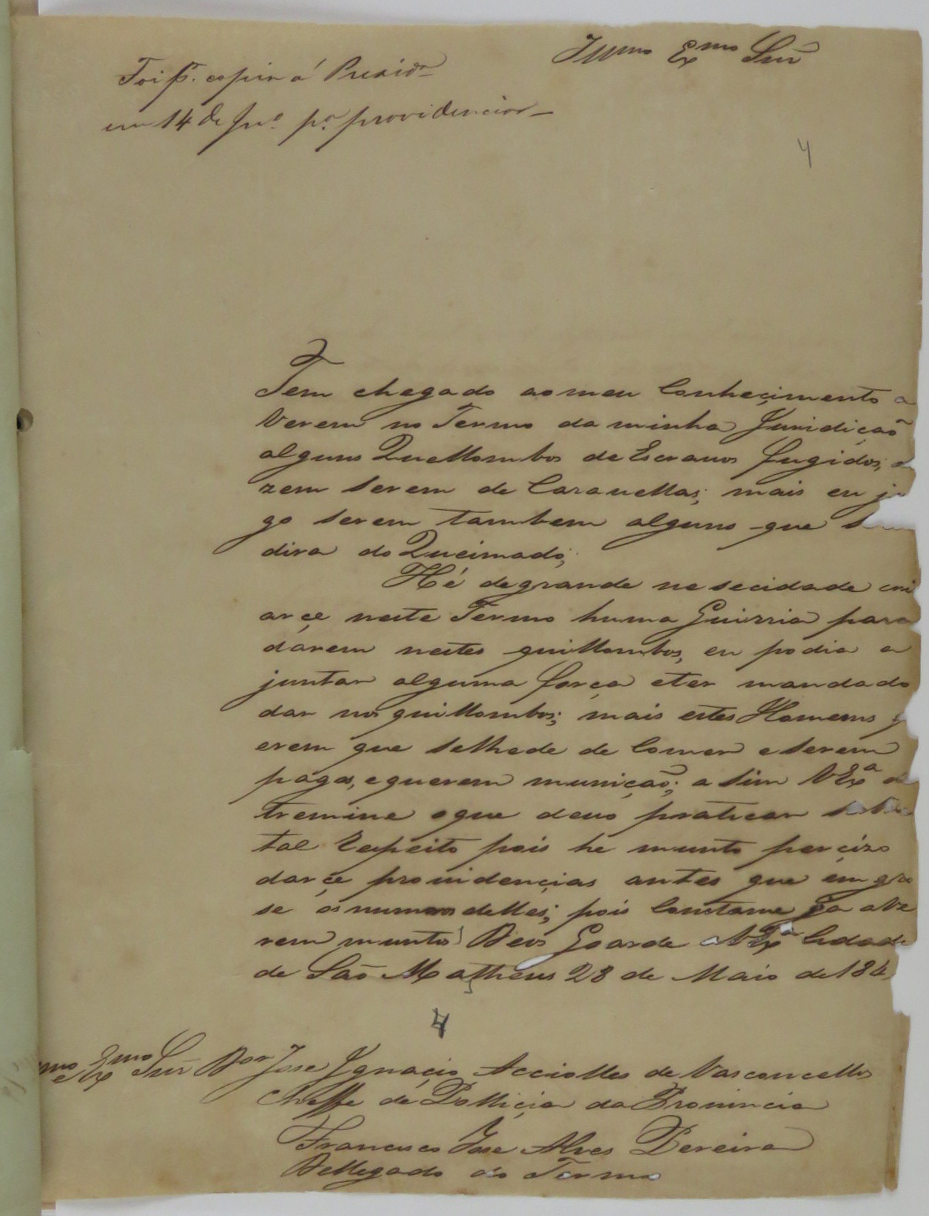 Illmo Exmo Snr
Foi pr. copia á Presida
em 14 de Jnº. pª. providencias
4
Tem chegado ao meu Conhecimento a
Verem no Termo da minha Juridição
alguns Quellombos de Escravos fugidos,
zem serem de Caravellas; mais eu ju
go serem tambem alguns que
dira do Queimado;
Hé de grande nesecidade cri
arçe neste Termo huma Guirria para
dárem nestes quillombos, eu podia a
juntar alguma força eter mandado
dar nos quillombos; mais estes Homens q
erem que selhede de Comer e serem
pagos, e querem munição; a sim VExª de
tremine oque devo praticar sobre
tal Respeito pois he munto percizo
darçe providencias antes que em gro
se os numeros delles; pois Constame ja aVe
rem munto Deos Goarde a VExª Cidade
de São Matheus 28 de Maio de 184
4
mo Exmo Snr Dor Jose Ignacio Acciolles de Vasconcellos
Cheffe de Pollicia da Provincia
Francisco Jose Alves Pereira
Dellegado do Termo